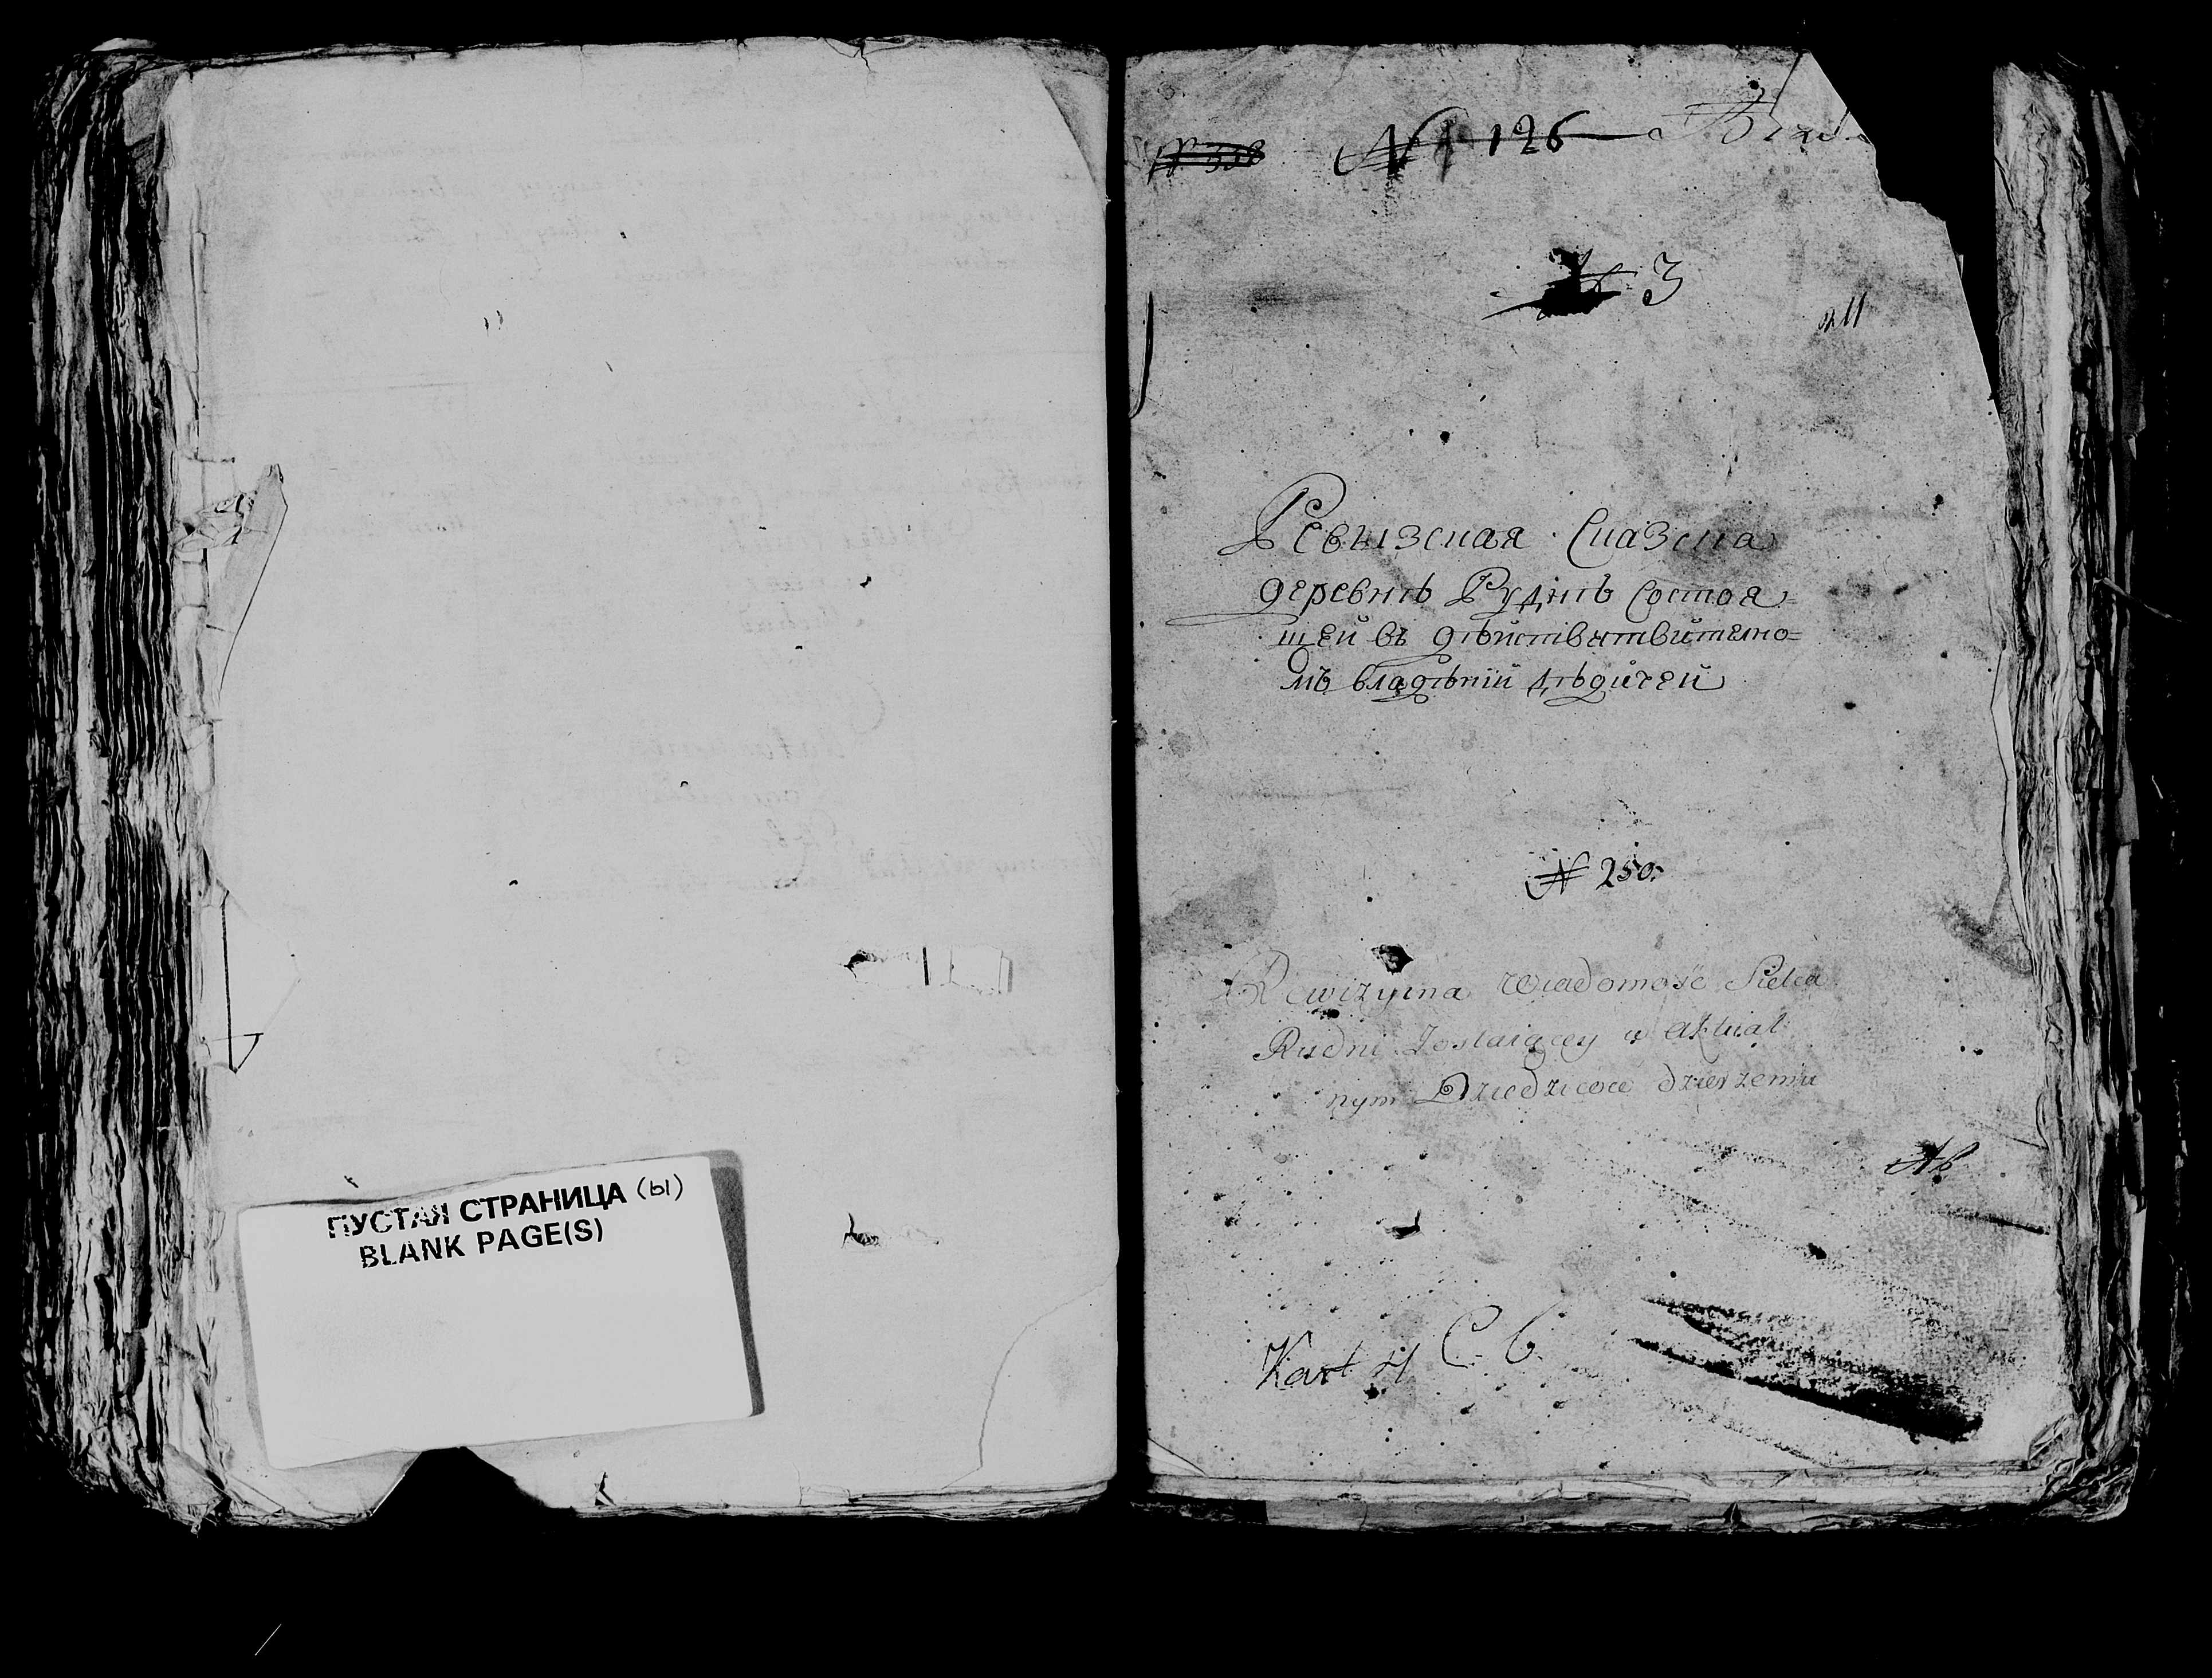 ПУСТАЯ СТРАНИЦА (Ы)
BLANK PAGE(S)
№ 126
№ 3
Ревизская Сказка
деревнѣ Руднѣ Состоя=
щей въ дѣйствятвително=
мъ владѣнии дѣдичей
№ 250.
Rewizyina Wiadomość Sielca
Rudni Zostaiącey w Aktual
nym Dziedziców dzierżeniu
Kart 4 С. 6.